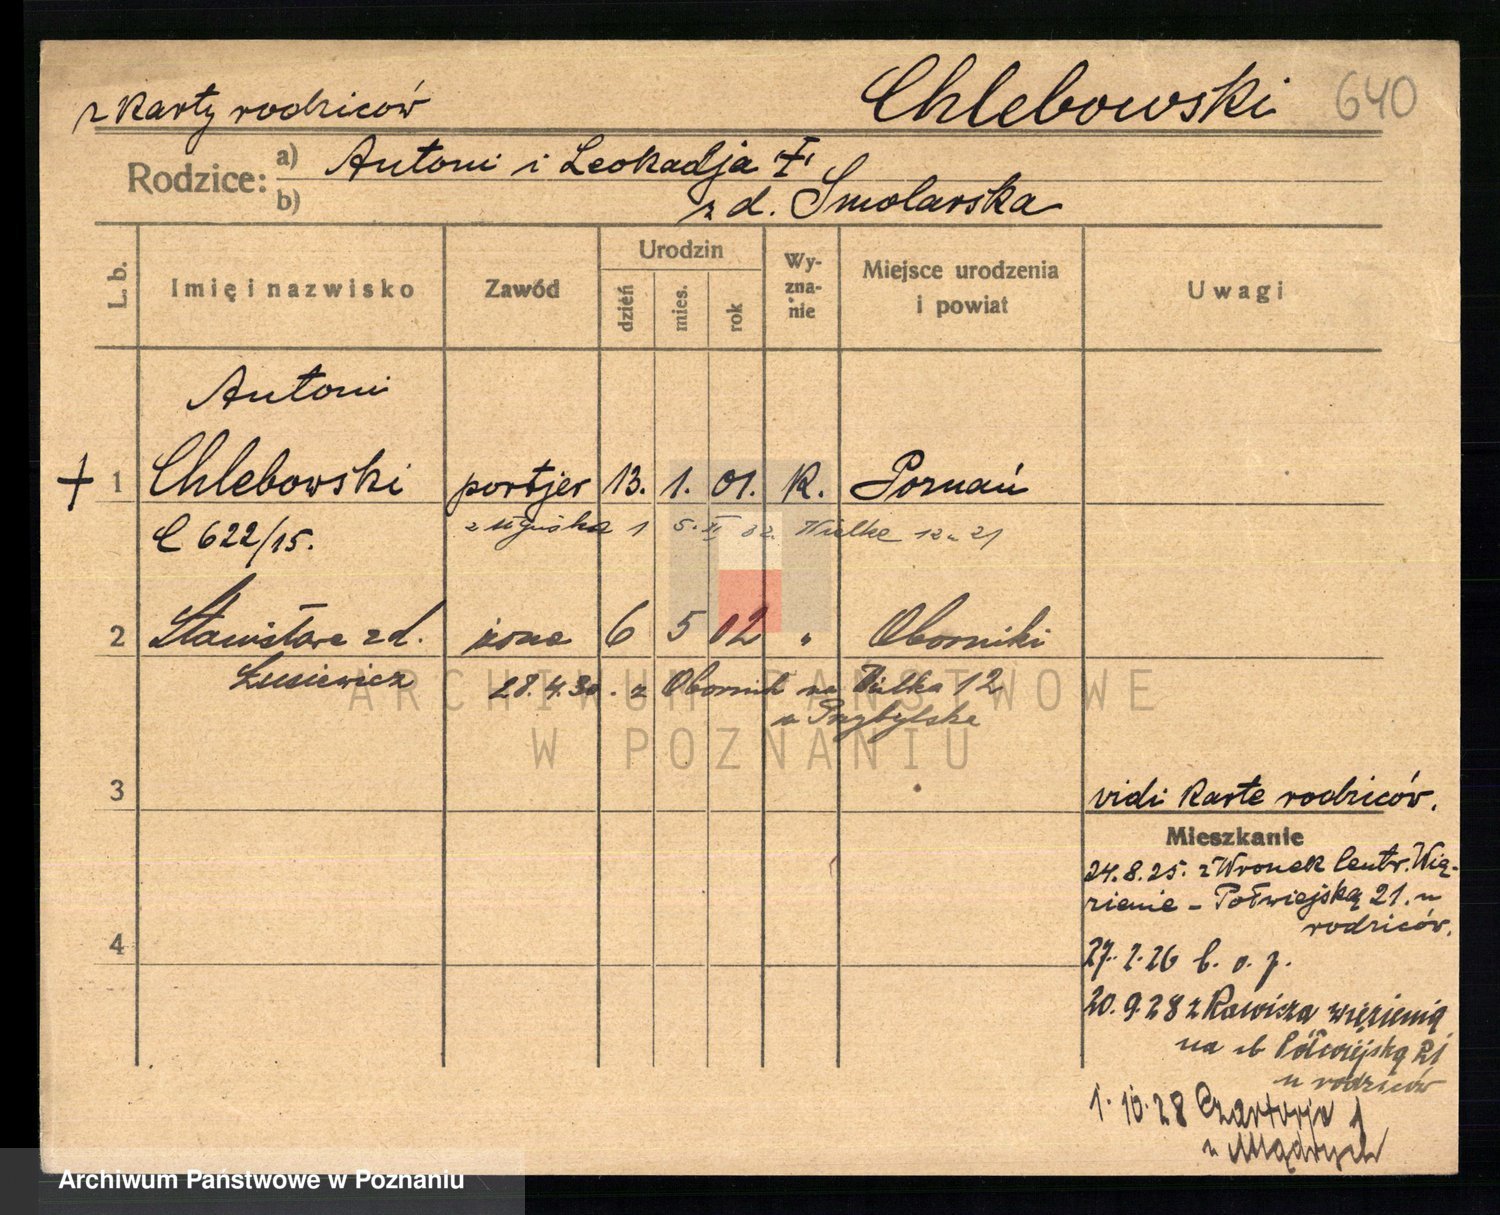 z karty rodziców
Chlebowski 640
Rodzice: a) Antoni i Leokadja "I"
b) z d. Smolarska
L. b. Imię i nazwisko Zawód Urodzin dzień mies. rok Wyzna-nie Miejsce urodzenia i powiat Uwagi
Antoni
+ 1 Chlebowski portjer 13. 1. 01. k. Poznań
C 622/15. 1 5. XI 32. Wielka 12 21
2 Stanisława z d. żona 6 5 02 " Oborniki
28.4.30. z Obornik na Wielka 12
u Przybylska
ARCHIWUM PAŃSTWOWE
W POZNANIU
3
vidi karte rodziców.
Mieszkanie
24.8.25. z Wronek Centr. Wię-
zienie - Półwiejską 21. u
rodziców.
4
27.2.26 b. o. p.
20.9.28 z Rawicza więzienia
na ul Półwiejską 21
u rodziców
1.10.28 Czartorja 1
u Mądrych
Archiwum Państwowe w Poznaniu